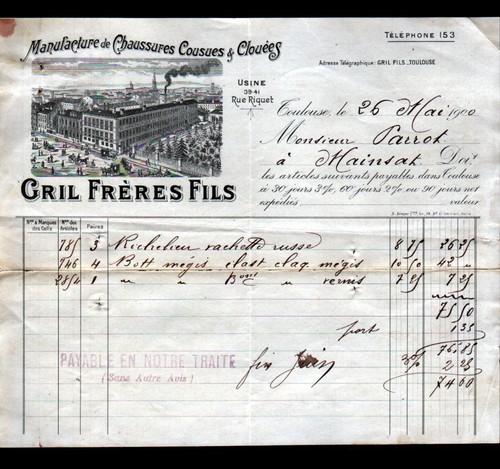 Manufacture de Chaussures Cousues & Clouées
TÉLÉPHONE 153
Adresse Télégraphique: GRIL FILS, TOULOUSE
USINE
39-41
RUE RIQUET
Toulouse, le 26 Mai 1900
Monsieur Parrot
à Mainsat Doit
les articles suivants payables dans Toulouse
à 30 jours 3%, 60 jours 2% ou 90 jours net
expédiés valeur
GRIL FRÈRES FILS
Nos & Marques des Colis Nos des Articles Paires
785 3 Richelieu vachette russe 8 75 26 25
746 4 Bott mégis elast claq mégis 10 50 42 "
2854 1 " " vernis 7 25 7 25
75 50
port 1 35
76.85
PAYABLE EN NOTRE TRAITE
(Sans Autre Avis)
fin Juin 3% 2 25
74 60